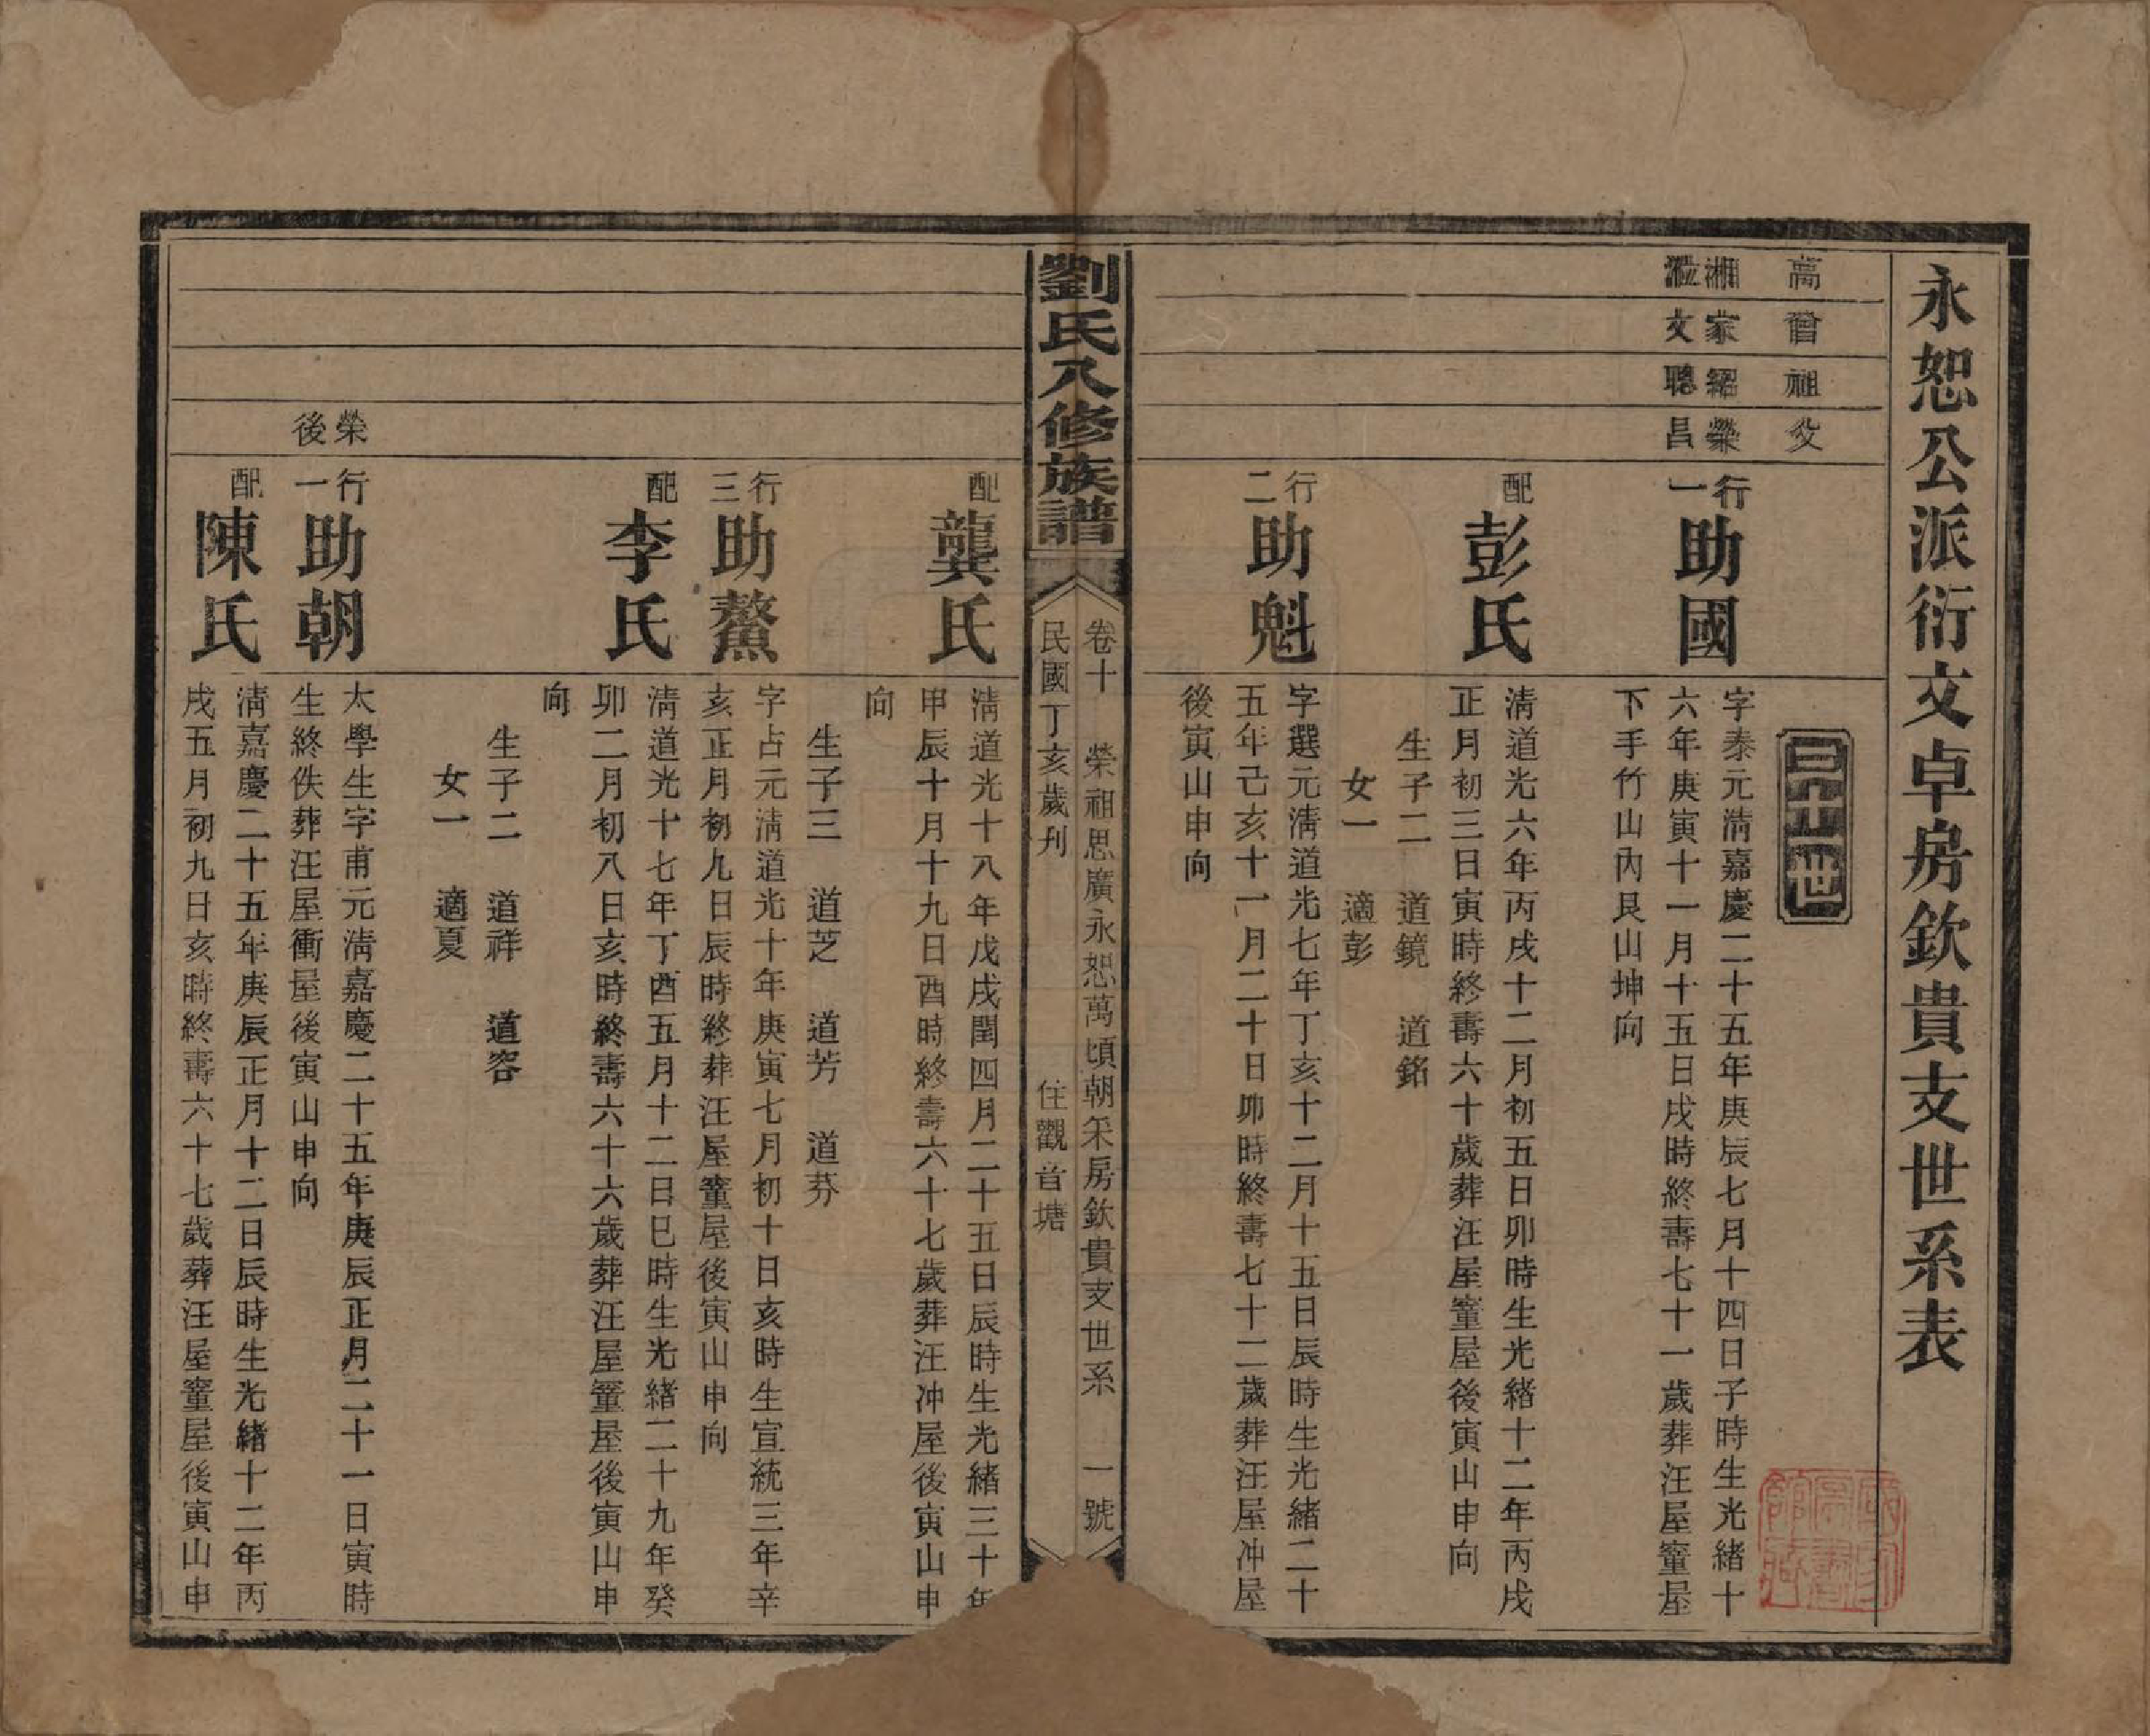 永恕公派衍文卓房欽貴支世系表
高 曾 祖 父
湘 家 紹 榮
文 聰 昌
三十一世
行一 助國
字泰元清嘉慶二十五年庚辰七月十四日子時生光緒十
六年庚寅十一月十五日戌時終壽七十一歲葬汪屋𥫣屋
下手竹山內艮山坤向
配 彭氏
清道光六年丙戌十二月初五日卯時生光緒十二年丙戌
正月初三日寅時終壽六十歲葬汪屋𥫣屋後寅山申向
生子二 道鏡 道銘
女一 適彭
行二 助魁
字選元清道光七年丁亥十二月十五日辰時生光緒二十
五年己亥十一月二十日卯時終壽七十二歲葬汪屋冲屋
後寅山申向
劉氏八修族譜
卷十 榮祖思廣永恕萬頃朝采房欽貴支世系 一號
民國丁亥歲刋 住觀音塘
配 龔氏
清道光十八年戊戌閏四月二十五日辰時生光緒三十年
甲辰十月十九日酉時終壽六十七歲葬汪冲屋後寅山申
向
生子三 道芝 道芳 道芬
行三 助鰲
字占元清道光十年庚寅七月初十日亥時生宣統三年辛
亥正月初九日辰時終葬汪屋𥫣屋後寅山申向
配 李氏
清道光十七年丁酉五月十二日巳時生光緒二十九年癸
卯二月初八日亥時終壽六十六歲葬汪屋𥫣屋後寅山申
向
生子二 道祥 道容
女一 適夏
榮後
行一 助朝
太學生字甫元清嘉慶二十五年庚辰正月二十一日寅時
生終佚葬汪屋衝屋後寅山申向
配 陳氏
清嘉慶二十五年庚辰正月十二日辰時生光緒十二年丙
戌五月初九日亥時終壽六十七歲葬汪屋𥫣屋後寅山申